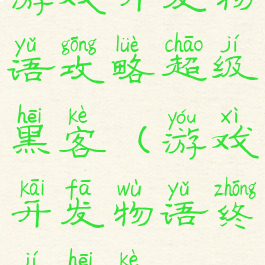 游戏开发物
yǔ gōng lüè chāo jí
语攻略超级
hēi kè yóu xì
黑客（游戏
kāi fā wù yǔ zhōng
开发物语终
jí hēi kè